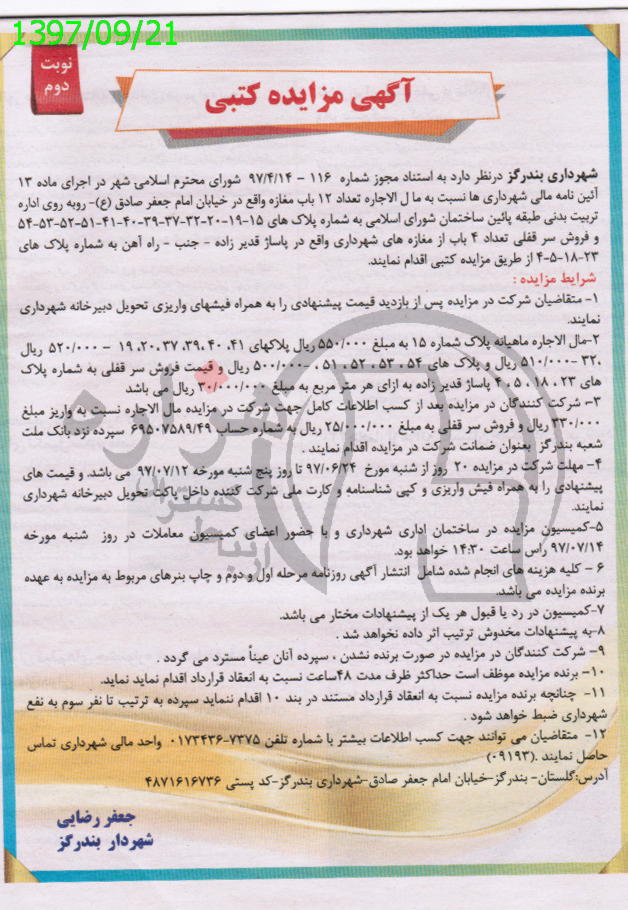 1397/09/21
نوبت
دوم
آگهی مزایده کتبی
شهرداری بندرگز درنظر دارد به استناد مجوز شماره ۱۱۶ – ۹۷/۴/۱۴ شورای محترم اسلامی شهر در اجرای ماده ۱۳
آئین نامه مالی شهرداری ها نسبت به ما ل الاجاره تعداد ۱۲ باب مغازه واقع در خیابان امام جعفر صادق (ع)- روبه روی اداره
تربیت بدنی طبقه پائین ساختمان شورای اسلامی به شماره پلاک های ۱۵-۱۹-۲۰-۳۲-۳۷-۳۹-۴۰-۴۱-۵۱-۵۲-۵۳-۵۴
و فروش سر قفلی تعداد ۴ باب از مغازه های شهرداری واقع در پاساژ قدیر زاده - جنب - راه آهن به شماره پلاک های
۲۳-۱۸-۵-۴ از طریق مزایده کتبی اقدام نمایند.
شرایط مزایده :
۱- متقاضیان شرکت در مزایده پس از بازدید قیمت پیشنهادی را به همراه فیشهای واریزی تحویل دبیرخانه شهرداری
نمایند.
۲-مال الاجاره ماهیانه پلاک شماره ۱۵ به مبلغ ۵۵۰/۰۰۰ ریال پلاکهای ۴۱، ۴۰، ۳۹، ۳۷، ۲۰، ۱۹ – ۵۲۰/۰۰۰ ریال
۳۲، –۵۱۰/۰۰۰ ریال و پلاک های ۵۴، ۵۳، ۵۲، ۵۱، –۵۰۰/۰۰۰ ریال و قیمت فروش سر قفلی به شماره پلاک
های ۲۳، ۱۸، ۵، ۴ پاساژ قدیر زاده به ازای هر متر مربع به مبلغ ۳۰/۰۰۰/۰۰۰ ریال می باشد
۳- شرکت کنندگان در مزایده بعد از کسب اطلاعات کامل جهت شرکت در مزایده مال الاجاره نسبت به واریز مبلغ
۳۳۰/۰۰۰ ریال و فروش سر قفلی به مبلغ ۲۵/۰۰۰/۰۰۰ ریال به شماره حساب ۶۹۵۰۷۵۸۹/۴۹ سپرده نزد بانک ملت
شعبه بندرگز بعنوان ضمانت شرکت در مزایده اقدام نمایند .
۴- مهلت شرکت در مزایده ۲۰ روز از شنبه مورخ ۹۷/۰۶/۲۴ تا روز پنج شنبه مورخه ۹۷/۰۷/۱۲ می باشد. و قیمت های
پیشنهادی را به همراه فیش واریزی و کپی شناسنامه و کارت ملی شرکت کننده داخل پاکت تحویل دبیرخانه شهرداری
نمایند.
۵-کمیسیون مزایده در ساختمان اداری شهرداری و با حضور اعضای کمیسیون معاملات در روز شنبه مورخه
۹۷/۰۷/۱۴ راس ساعت ۱۴:۳۰ خواهد بود.
۶ - کلیه هزینه های انجام شده شامل انتشار آگهی روزنامه مرحله اول و دوم و چاپ بنرهای مربوط به مزایده به عهده
برنده مزایده می باشد.
۷-کمیسیون در رد یا قبول هر یک از پیشنهادات مختار می باشد.
۸-به پیشنهادات مخدوش ترتیب اثر داده نخواهد شد .
۹- شرکت کنندگان در مزایده در صورت برنده نشدن ، سپرده آنان عیناً مسترد می گردد .
۱۰- برنده مزایده موظف است حداکثر ظرف مدت ۴۸ساعت نسبت به انعقاد قرارداد اقدام نماید نماید.
۱۱- چنانچه برنده مزایده نسبت به انعقاد قرارداد مستند در بند ۱۰ اقدام ننماید سپرده به ترتیب تا نفر سوم به نفع
شهرداری ضبط خواهد شود .
۱۲- متقاضیان می توانند جهت کسب اطلاعات بیشتر با شماره تلفن ۷۳۷۵-۰۱۷۳۴۳۶ واحد مالی شهرداری تماس
حاصل نمایند .(۰۹۱۹۳)
آدرس:گلستان- بندرگز-خیابان امام جعفر صادق-شهرداری بندرگز-کد پستی ۴۸۷۱۶۱۶۷۳۶
جعفر رضایی
شهردار بندرگز